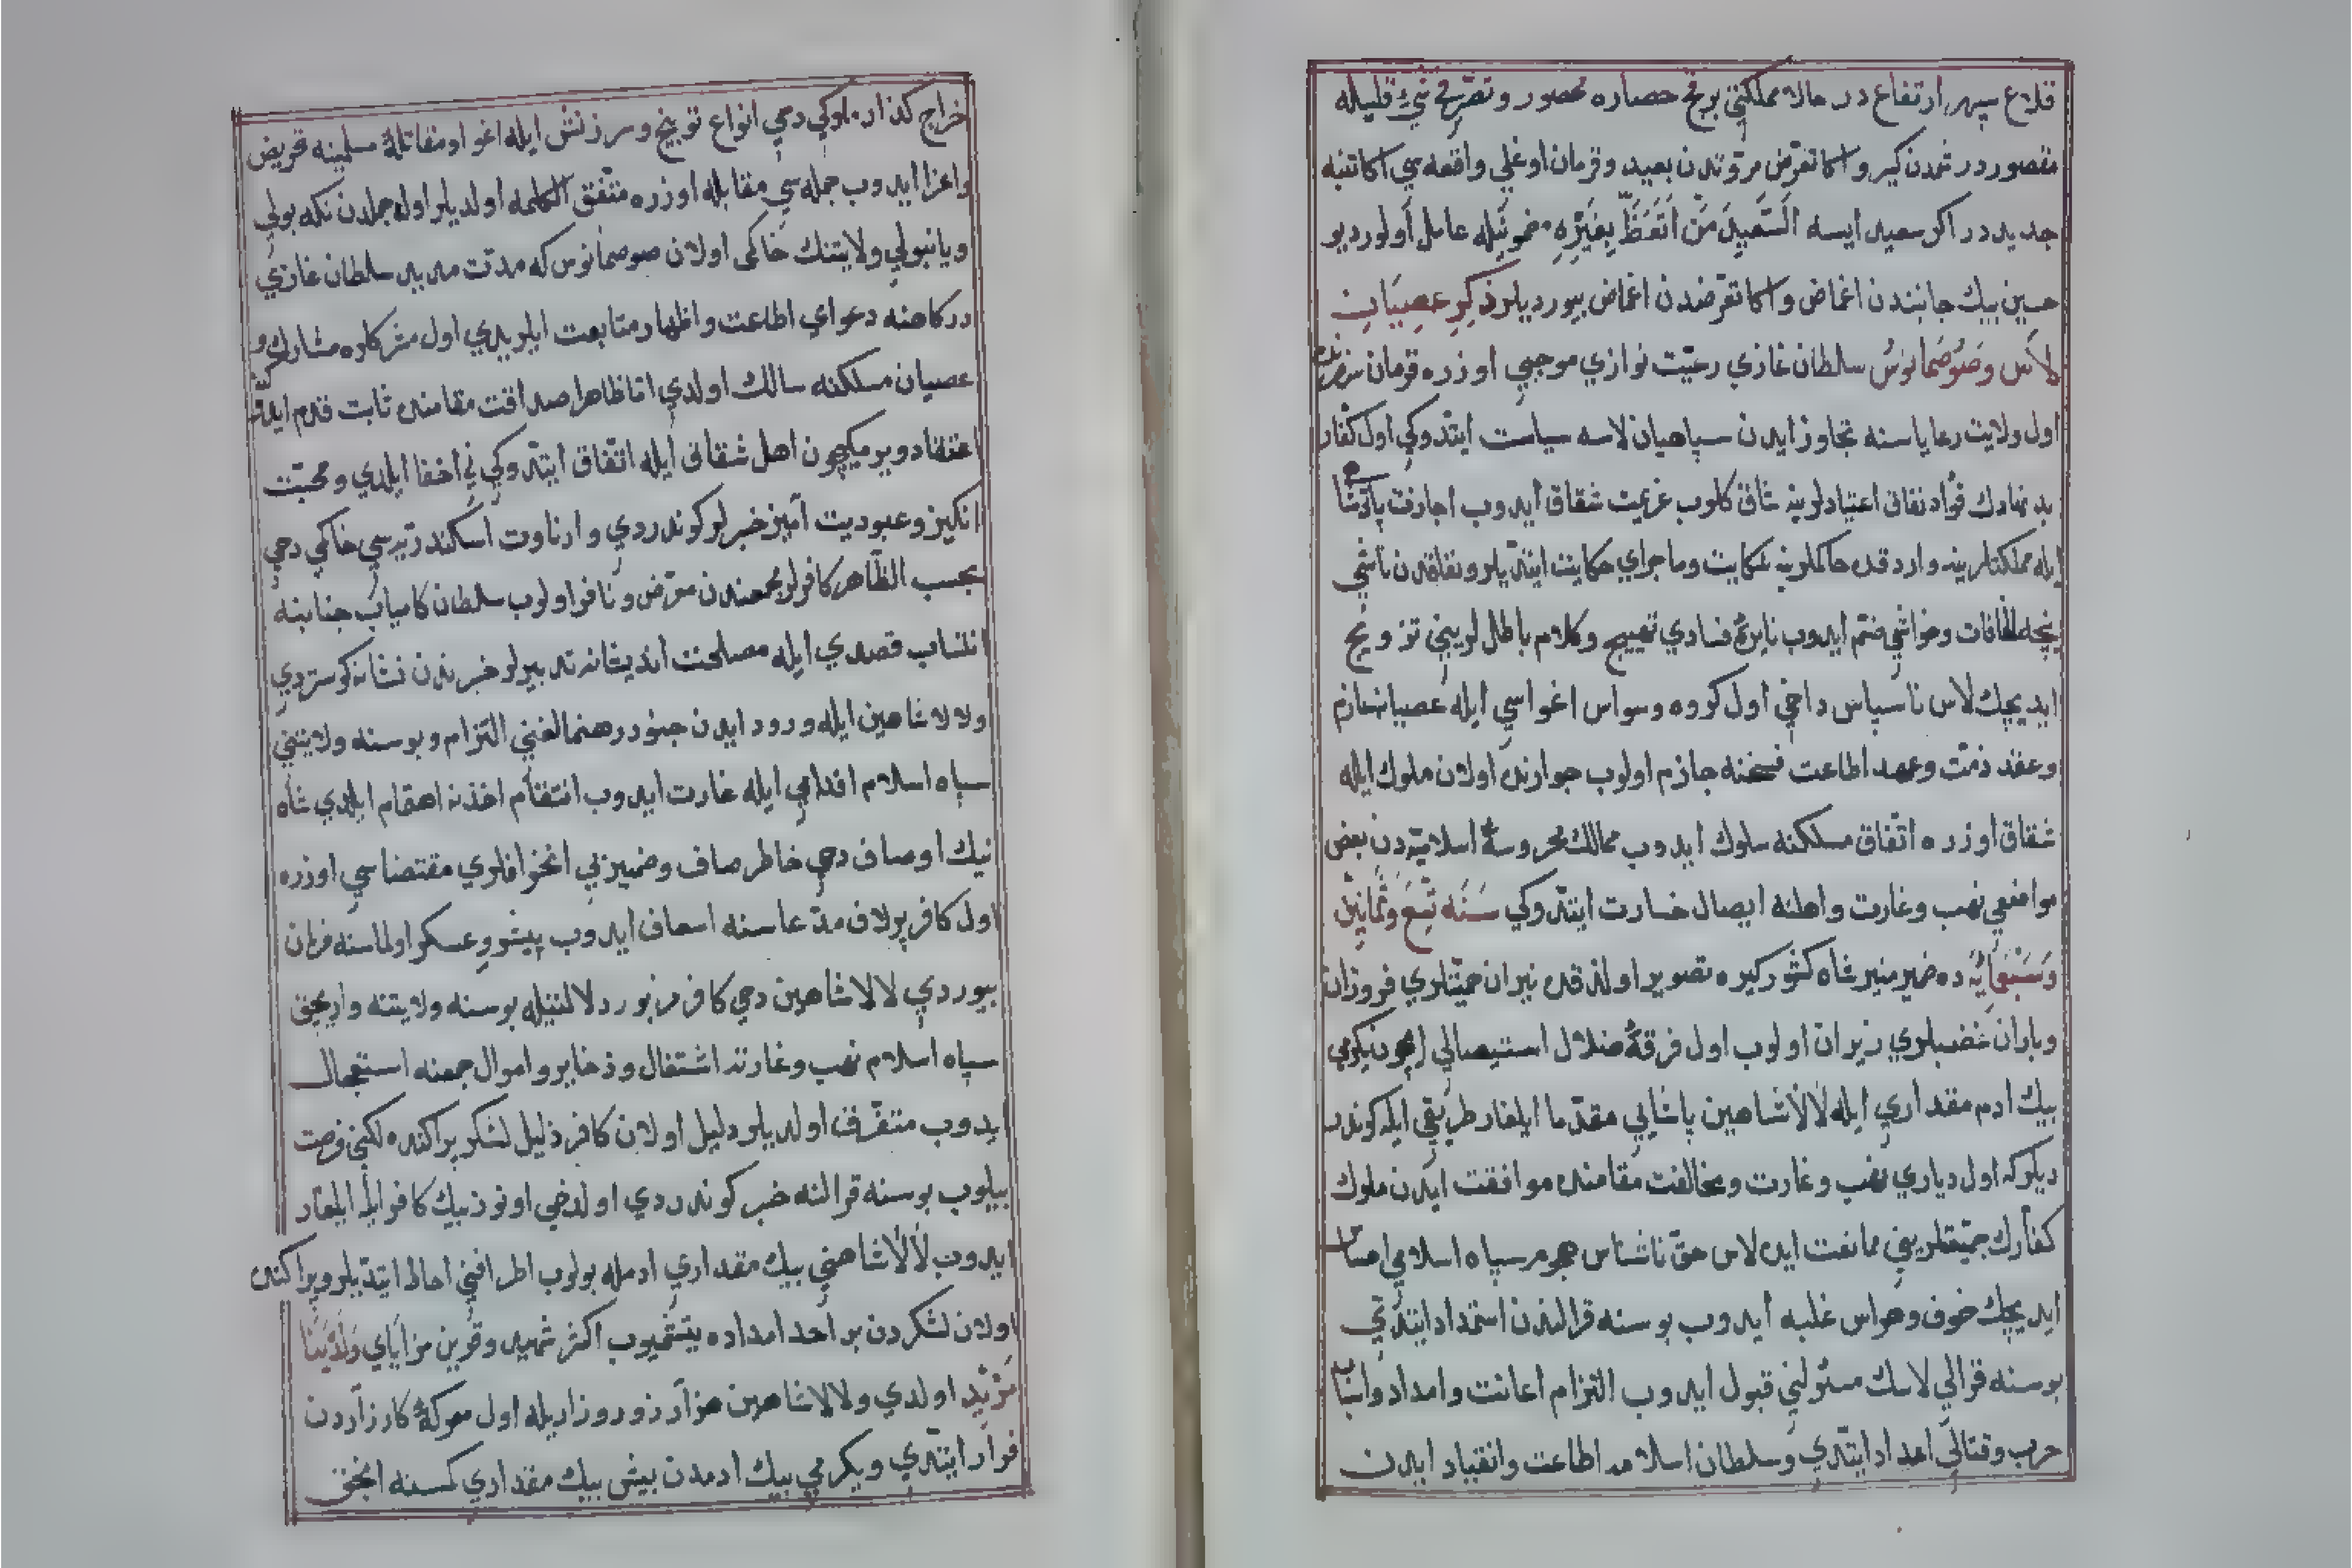 قلاع سپهر ارتفاع در حالا مملكتي بر قح حصاره محصور و تصرفي شيء قليله
مقصور در شمدن كيرو اكا تعرض مروتدن بعيد و قرمان اوغلي واقعه سي اكا تنبه
جديد در اكر سعيد ايسه السعيد من اتعظ بغيره مضمونيله عامل اولور ديو
حسين بيك جانبندن اغماض و اكا تعرضدن اغماض بيورديلر ذكر عصيان
لاس وصوصمانوس سلطان غازي رعيت نوازي موجبي اوزره قرمان سفرنده
اول ولايت رعاياسنه تجاوز ايدن سپاهيان لاسه سياست ايتدوكي اول كفار
بد نهادك فؤاد نفاق اعتيادلرينه شاق كلوب عزيمت شقاق ايدوب اجازت پادشا
ايله مملكتلرينه واردقده حاكملرينه شكايت وماجراي حكايت ايتديلر ونفاقدن ناشي
نيچه اضافات وحواشي ضم ايدوب نايره فسادي تهييج وكلام باطللريني ترويج
ايديچك لاس ناسپاس داخي اول كروه وسواس اغواسي ايله عصيانه عازم
وعقد ذمت وعهد اطاعت فسخنه جازم اولوب جوارنده اولان ملوك ايله
شقاق اوزره اتفاق مسلكنه سلوك ايدوب ممالك محروسه اسلاميه دن بعض
مواضعي نهب وغارت واهلنه ايصال خسارت ايتدوكي سنه تسع وثمانين
وسبعمايه ده ضمير منير شاه كشوركيره تصوير اولندقده نيران حميتلري فروزان
وباران غضبلري ريزان اولوب اول فرقه ضلال استيصالي ايچون يكرمي
بيك ادم مقداري ايله لالاشاهين پاشايي مقدما ايلغار طريقي ايله كوندر
ديلر كه اول دياري نهب وغارت ومخالفت مقامنده موافقت ايدن ملوك
كفارك جمعيتلريني ممانعت ايده لاس حق ناشناس هجوم سپاه اسلامي احساس
ايديچك خوف وهراس غلبه ايدوب بوسنه قرالندن استمداد ايتدي
بوسنه قرالي لاسك مسئولني قبول ايدوب التزام اعانت وامداد واسباب
حرب وقتالي اعداد ايتدي وسلطان اسلامه اطاعت وانقياد ايدن
خراج كذار ملوكي دخي انواع توبيخ وسرزنش ايله اغوا و مقاتله مسلمينه تحريض
واغرا ايدوب جمله سي مقابله اوزره متفق الكلمه اولديلر اول جمله دن نكه بولي
ويانبولي ولايتنك حاكمي اولان صوصمانوس كه مدت مديد سلطان غازي
دركاهنه دعواي اطاعت واظهار متابعت ايلريدي اول مشركلره مشارك و
عصيان مسلكنه سالك اولدي اما ظاهرا صداقت مقامنده ثابت قدم ايدوكنه
اعتقاد ويرميكچون اهل شقاق ايله اتفاق ايتدوكيني اخفا ايلدي ومحبت
انكيز وعبوديت آميز خبرلر كوندردي وارناوت اسكندريه سي حاكمي دخي
بحسب الظاهر كافرلر مجمعندن معرض ونافر اولوب سلطان كامياب جنابنه
انتساب قصدي ايله مصلحت انديشانه تدبيرلو خبرندن نشانه كوستردي
ولالا شاهين ايله ورود ايدن جنود رهنمالغني التزام وبوسنه ولايتني
سپاه اسلام اقدامي ايله غارت ايدوب انتقام اخذنه اهتمام ايلدي شاه
نيك اوصاف دخي خاطر صاف وضمير بي انحرافلري مقتضاسي اوزره
اول كافر پرلاف مدعاسنه اسعاف ايدوب پيشرو عسكر اولماسنه فرمان
بيوردي لالا شاهين دخي كافر مزبور دلالتيله بوسنه ولايتنه واريجق
سپاه اسلام نهب وغارته اشتغال وذخاير واموال جمعنه استعجال
ايدوب متفرق اولديلر دليل اولان كافر ذليل لشكر پراكنده لكني فرصت
بيلوب بوسنه قرالنه خبر كوندردي اولدخي اوتوز بيك كافر ايله ايلغار
ايدوب لالاشاهيني بيك مقداري ادمله بولوب اطرافني احاطه ايتديلر وپراكنده
اولان لشكردن بر احد امداده يتشميوب اكثر شهيد وقرين مزاياي ولدينا
مزيد اولدي ولالاشاهين هزار زور وزاريله اول معركه كارزاردن
فرار ايتدي ويكرمي بيك ادمدن بيش بيك مقداري كمسنه انجق